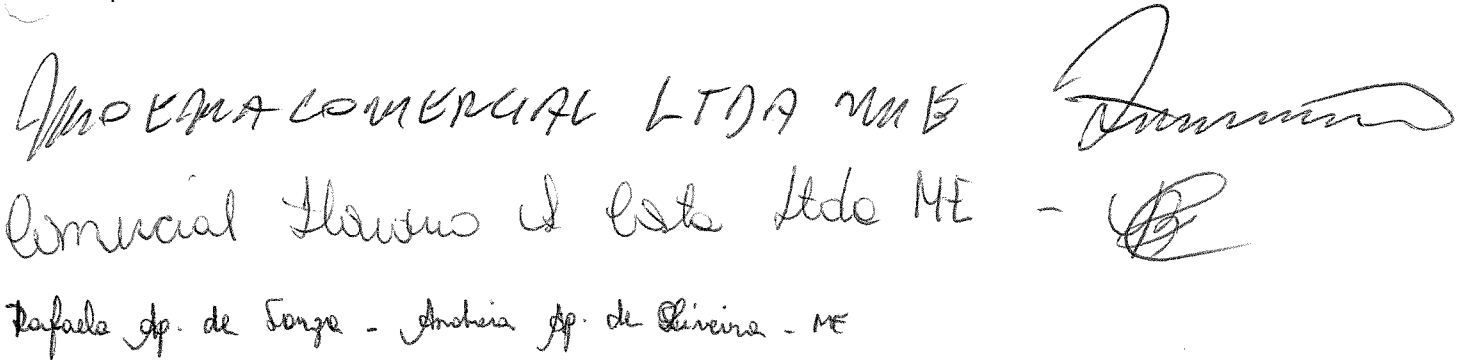 COMERCIAL LTDA ME
Comercial Flaviano & Costa Ltda ME -
Rafaela Ap. de Souza - Andreia Ap. de Oliveira - ME